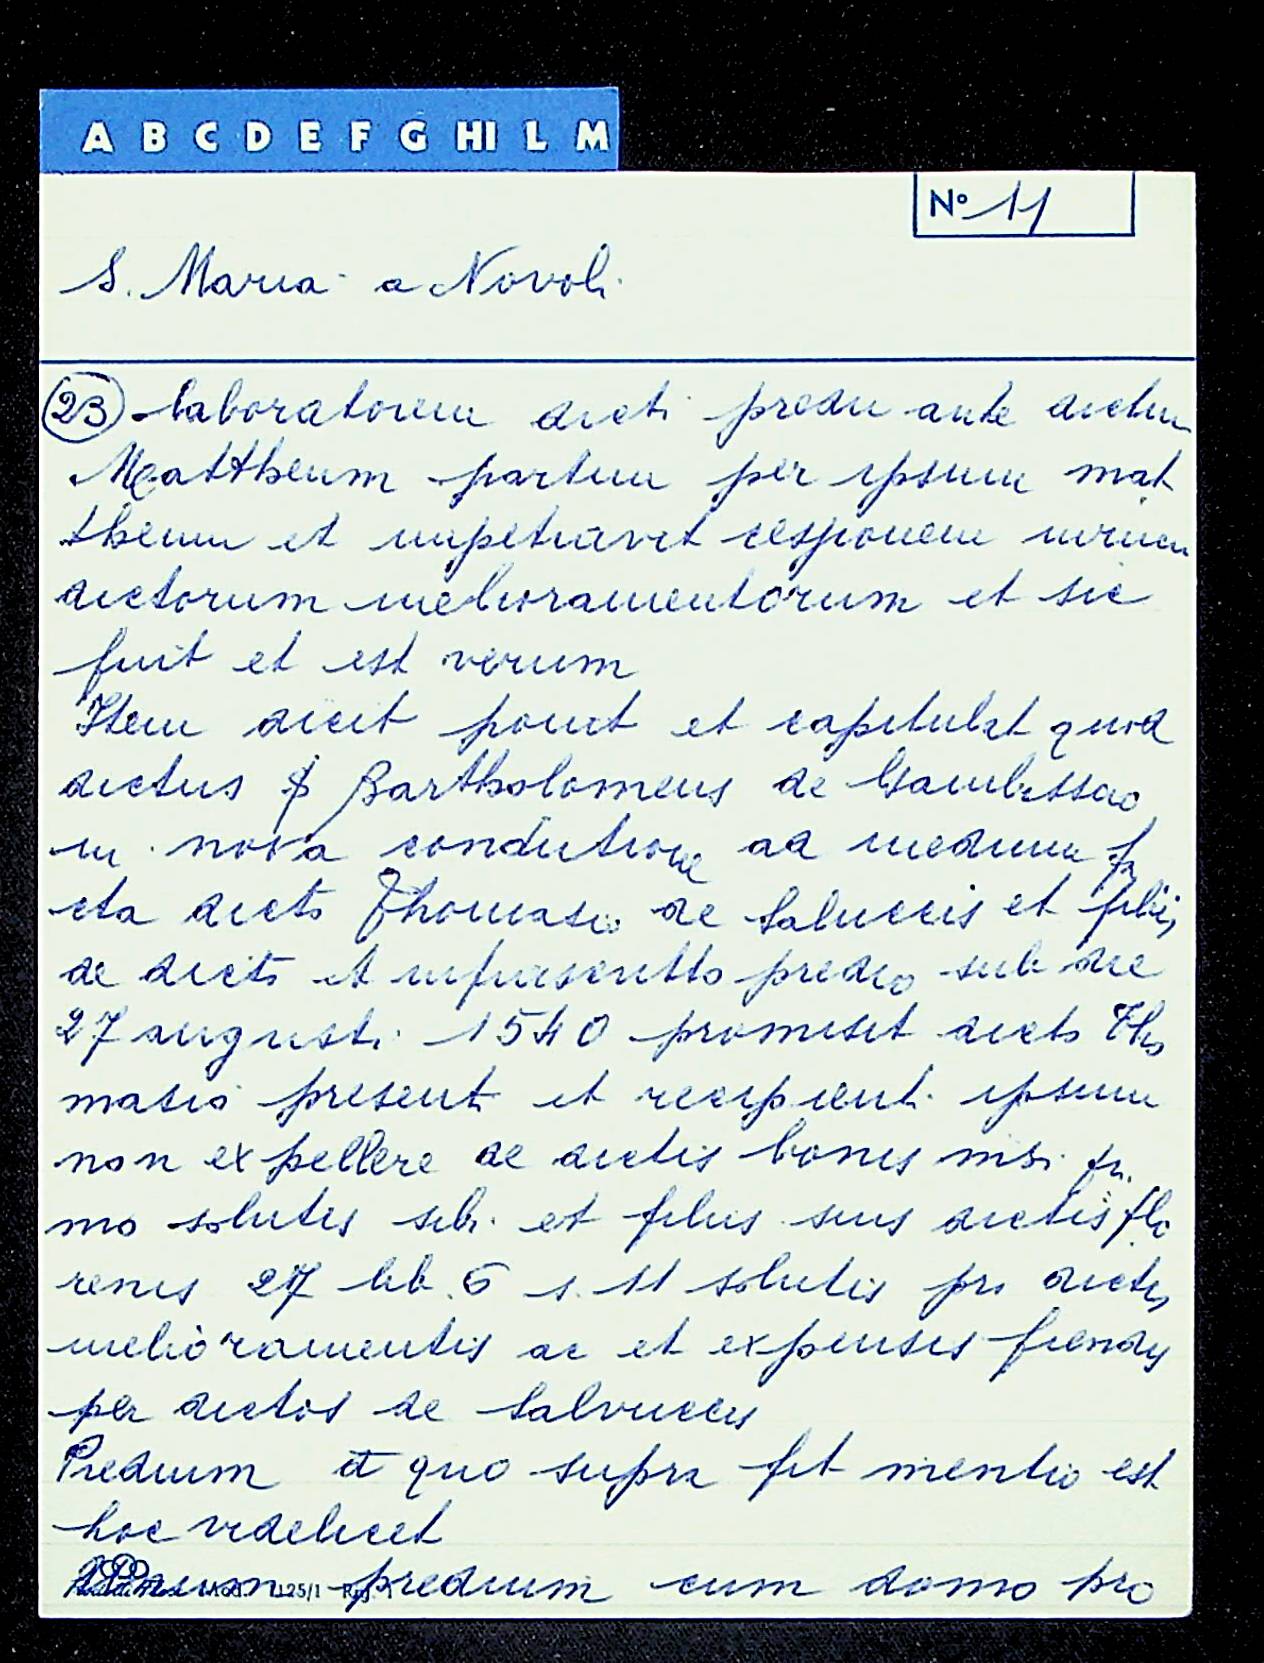 A B C D E F G HI L M
N° 11
S. Maria a Novoli
23 laboratorem dicti predii ante dictum
Mattheum partem per ipsum mat
theum et impetravit cessionem
dictorum melioramentorum et sic
fuit et est verum
Item dicit ponit et capitulat quod
dictus Bartholomeus de Gambassao
in nova condutione ad medium fa
cta dicto Thomasio de Saluccis et filiis
de dicto et infrascritto predio sub die
27 augusti 1540 promisit dicto Tho
masio present et recipient. ipsum
non expellere de dictis bonis nisi pri
mo solutis sibi et filiis suis dictis flo
renis 27 lib. 6 s. 11 solutis pro dictis
melioramentis ac et expensis fiendis
per dictos de Salvuccis
Predium de quo supra fit mentio est
hoc videlicet
Unum predium cum domo pro